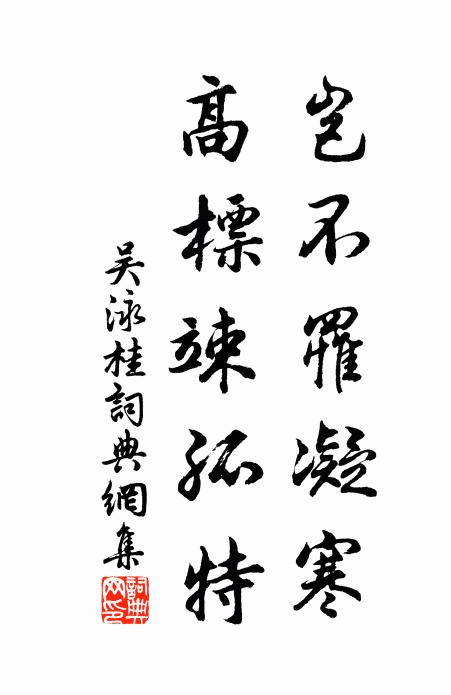 豈不罹凝寒
高標竦孤特
吴泳桂詞典網集
詞典網印